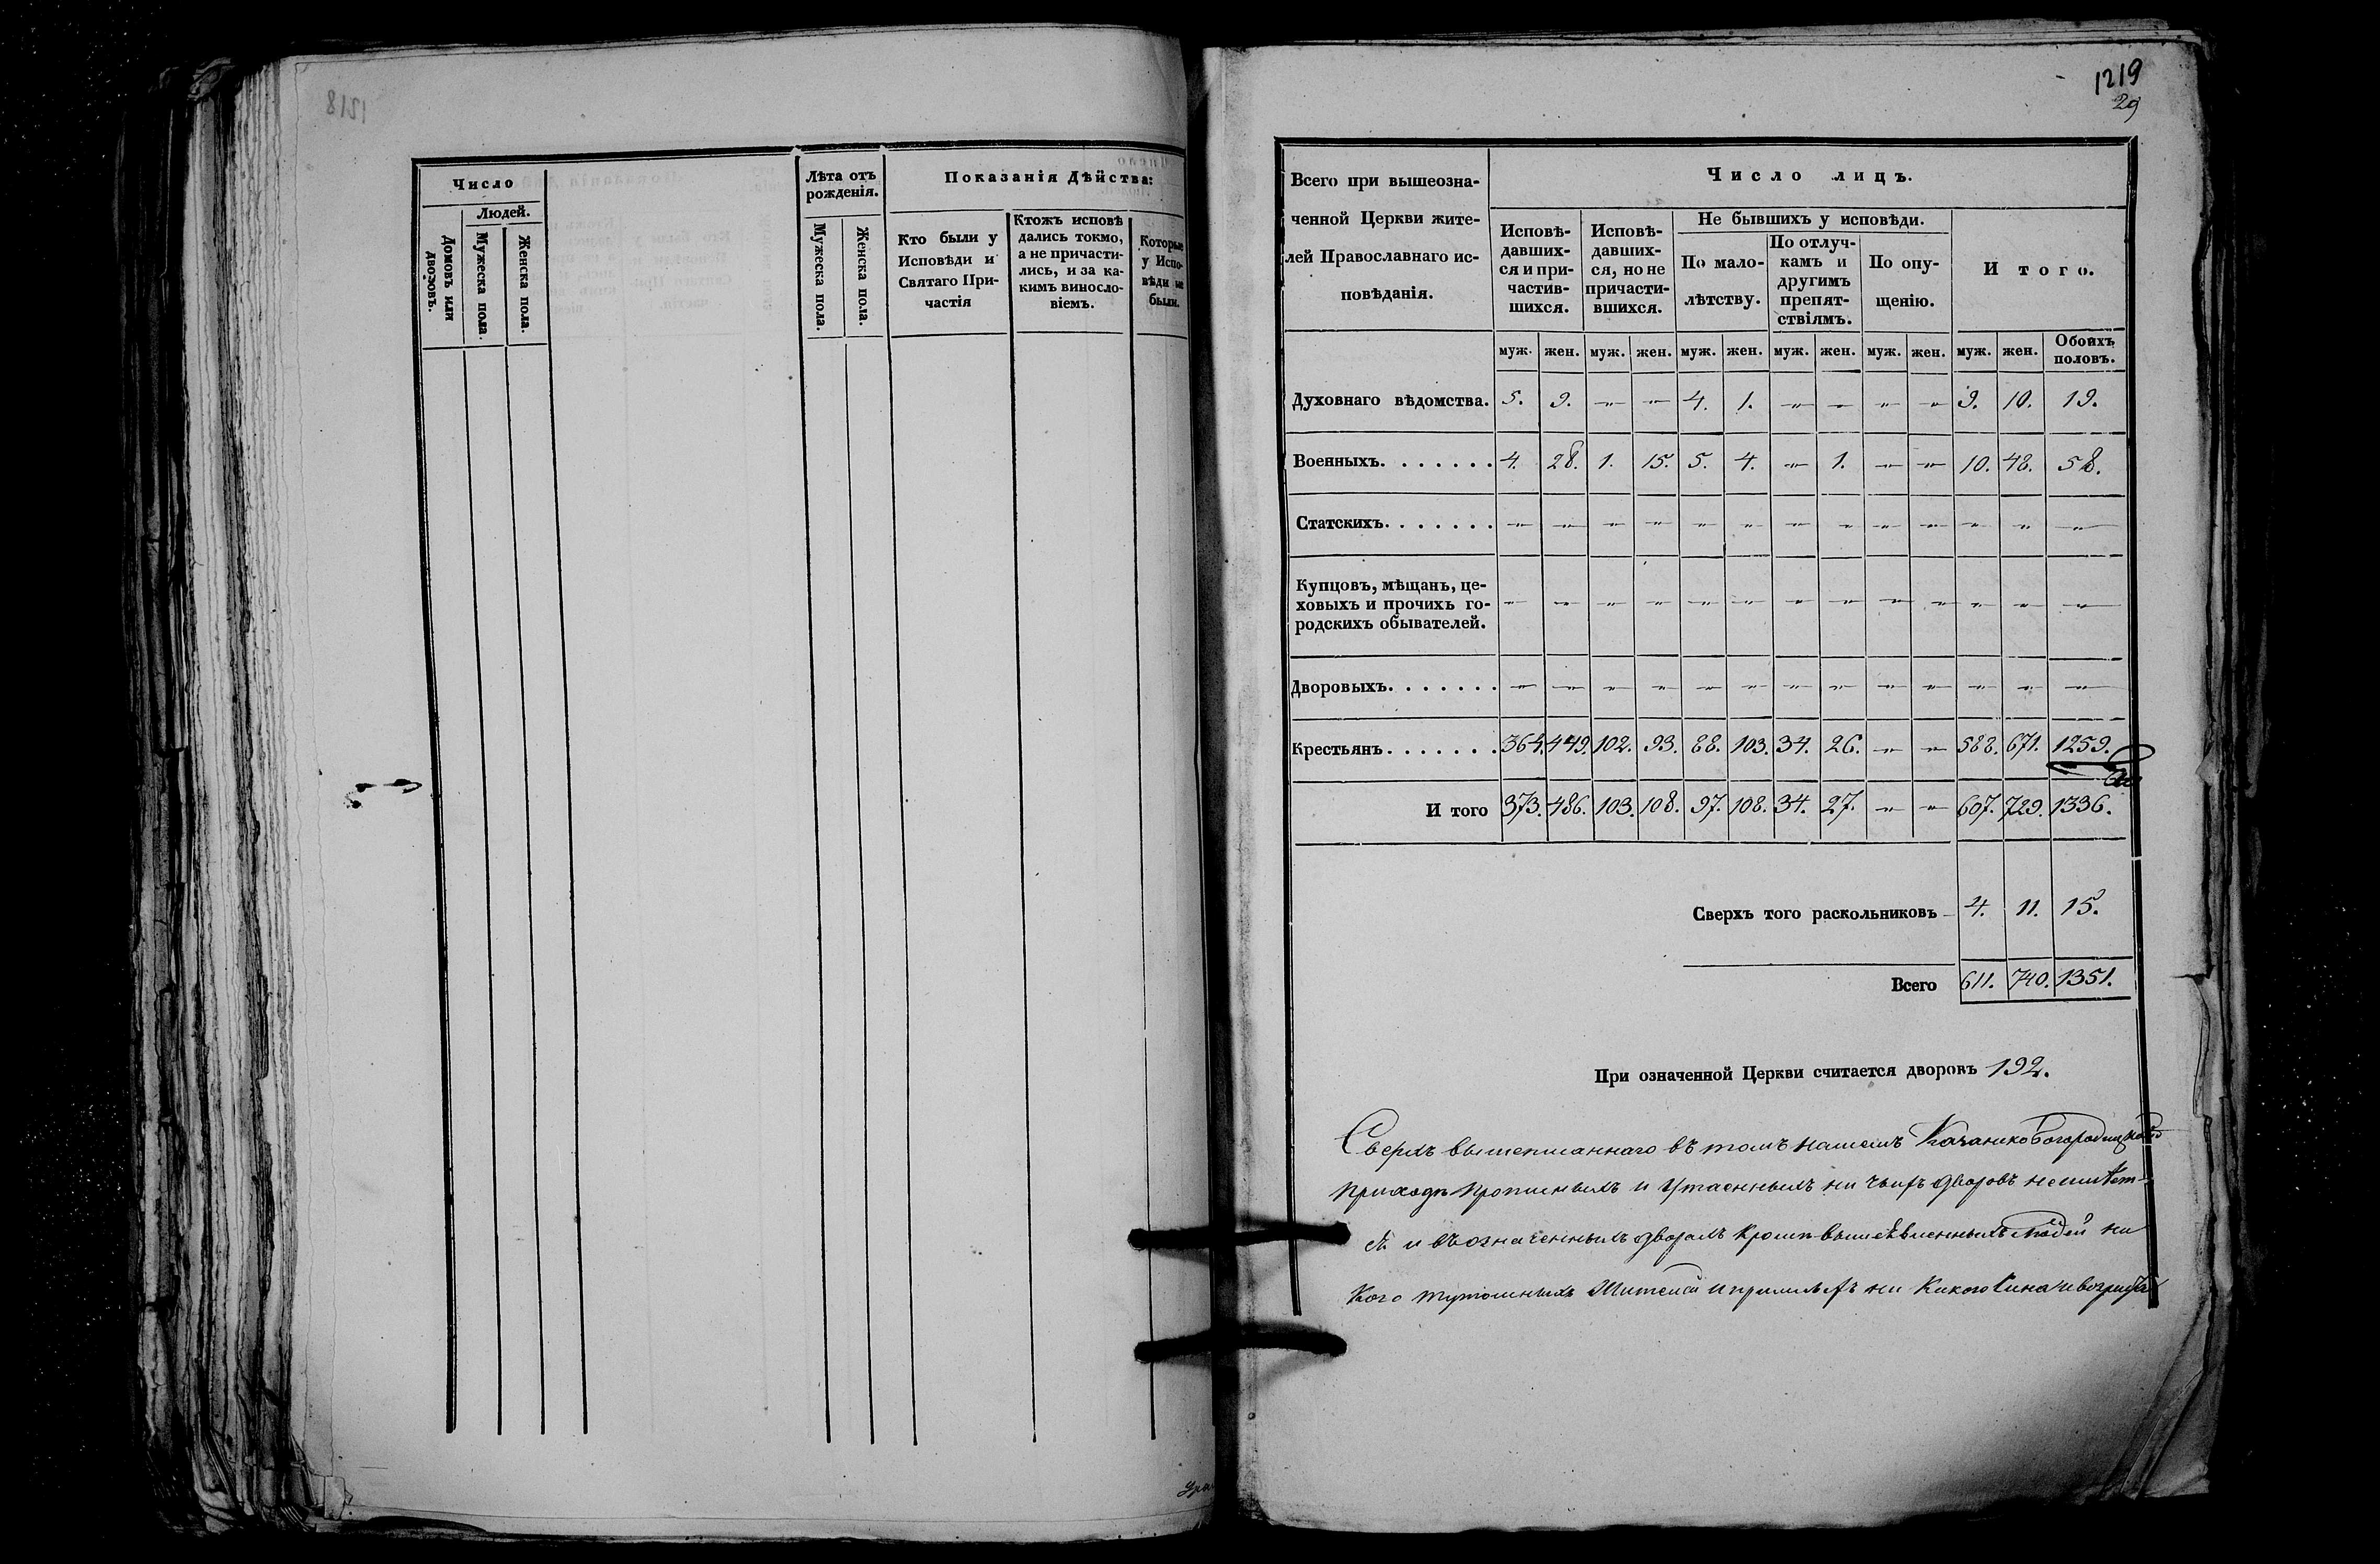 1218
Число
Людей.
Домовъ или дворовъ.
Мужеска пола
Женска пола.
Лѣта отъ рожденія.
Мужеска пола.
Женска пола.
Показанія Дѣйства:
Кто были у
Исповѣди и
Святаго При-
частія
Ктожъ исповѣ
дались токмо,
а не причасти-
лись, и за ка-
кимъ винosло-
віемъ.
Которые
у Испо-
вѣди не
были.
1219
29
Всего при вышеозна-
ченной Церкви жите-
лей Православнаго ис-
повѣданія.
Число лицъ.
Исповѣ-
давших-
ся и при-
частив-
шихся.
Исповѣ-
давших-
ся, но не
причасти-
вшихся.
Не бывшихъ у исповѣди.
По мало-
лѣтству.
По отлуч-
камъ и
другимъ
препят-
ствіямъ.
По опу-
щенію.
И того.
муж. жен. муж. жен. муж. жен. муж. жен. муж. жен. муж. жен. Обоихъ половъ.
Духовнаго вѣдомства. 5. 9. -„- -„- 4. 1. -„- -„- -„- -„- 9. 10. 19.
Военныхъ. . . . . . . 4. 28. 1. 15. 5. 4. -„- 1. -„- -„- 10. 48. 58.
Статскихъ. . . . . . . -„- -„- -„- -„- -„- -„- -„- -„- -„- -„- -„- -„- -„-
Купцовъ, мѣщанъ, це-
ховыхъ и прочихъ го-
родскихъ обывателей. -„- -„- -„- -„- -„- -„- -„- -„- -„- -„- -„- -„- -„-
Дворовыхъ. . . . . . . -„- -„- -„- -„- -„- -„- -„- -„- -„- -„- -„- -„- -„-
Крестьянъ. . . . . . . 364. 449. 102. 93. 88. 103. 34. 26. -„- -„- 588. 671. 1259.
И того 373. 486. 103. 108. 97. 108. 34. 27. -„- -„- 607. 729. 1336.
Сверхъ того раскольниковъ 4. 11. 15.
Всего 611. 740. 1351.
При означенной Церкви считается дворовъ 192.
Сверхъ вышеписаннаго въ томъ нашемъ
приходѣ прописныхъ и утаенныхъ ни чьихъ дворовъ не имѣет-
ся и въ означенныхъ дворахъ кромѣ людей ни
кого тутошныхъ жителей и ни какого чина и возраста